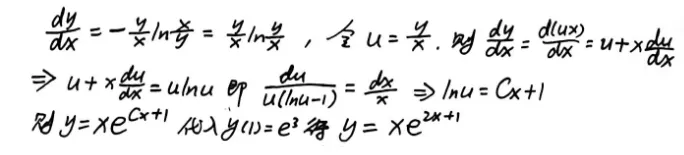 dy/dx = -y/x ln x/y = y/x ln y/x ，令 u = y/x . 则 dy/dx = d(ux)/dx = u + x du/dx
⇒ u + x du/dx = u ln u 即 du/u(ln u - 1) = dx/x ⇒ ln u = Cx + 1
则 y = xe^{Cx+1} 代入 y(1) = e^3 得 y = xe^{2x+1}